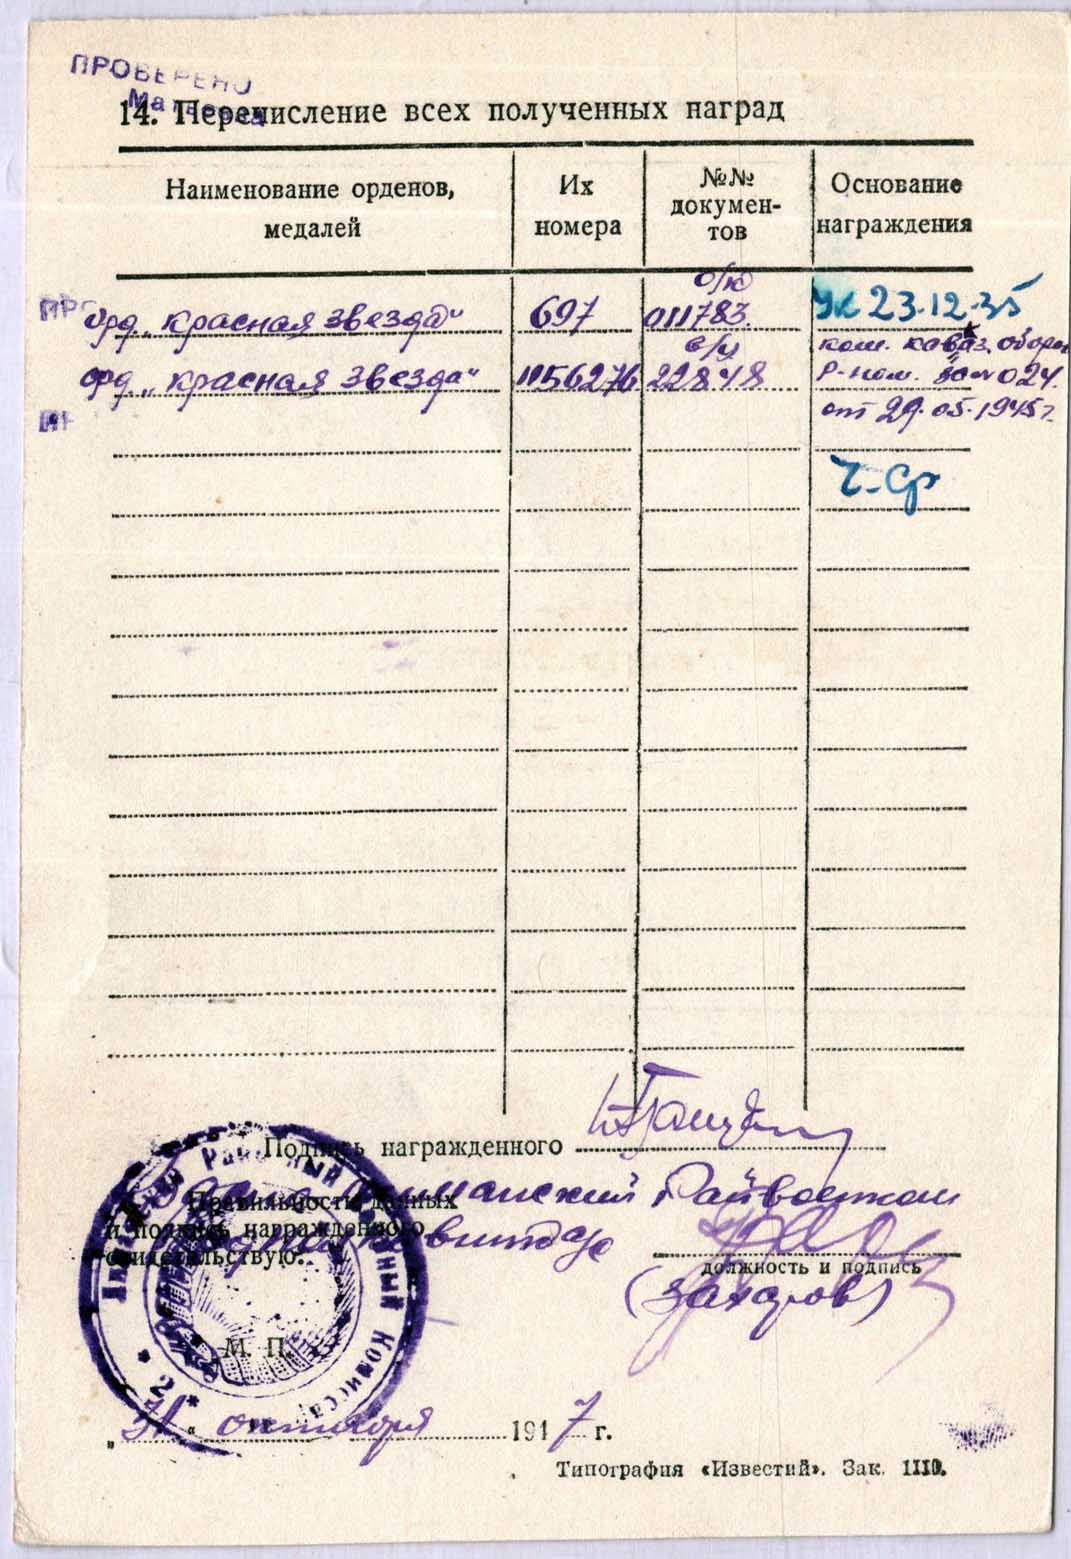 ПРОВЕРЕНО
14. Перечисление всех полученных наград
Наименование орденов, медалей
Их номера
№№ докумен-тов
Основание награждения
о/к
орд. „Красная Звезда" 697 011783 Ук 23.12.35
орд. „Красная Звезда" 1156276 22848
ком. кавказ.
024
от 29.05.1945 г.
Подпись награжденного
Правильность данных
и подпись награжденного
свидетельствую.
Райвоенком
должность и подпись
(Захаров)
М. П.
„31" октября 1947 г.
Типография «Известий». Зак. 1110.